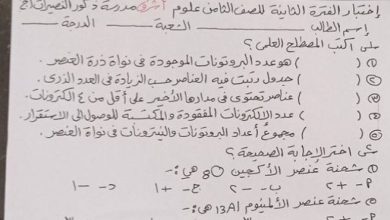 إختبار الفترة الثانية للصف الثامن علوم مدرسة ذكور النصيرات
إسم الطالب ــــــــــــ الشعبة ــــــــ الدرجة ــــــ
س١ أكتب المصطلح العلمى؟
١ ( ) هو عدد البروتونات الموجودة فى نواة ذرة العنصر.
٢ ( ) جدول رتبت فيه العناصر حسب الزيادة فى العدد الذرى.
٣ ( ) عناصر تحتوى فى مدارها الأخير على أقل من ٤ إلكترونات.
٤ ( ) عدد الإلكترونات المفقودة والمكتسبة للوصول إلى الاستقرار.
٥ ( ) مجموع أعداد البروتونات والنيترونات فى نواة العنصر.
س٢ اختر الإجابة الصحيحة؟
١ شحنة عنصر الأكسجين 8O هى:-
٢- ب- ٢- ج- +١ د- -١
٢ شحنة عنصر الألمنيوم 13Al هى:-